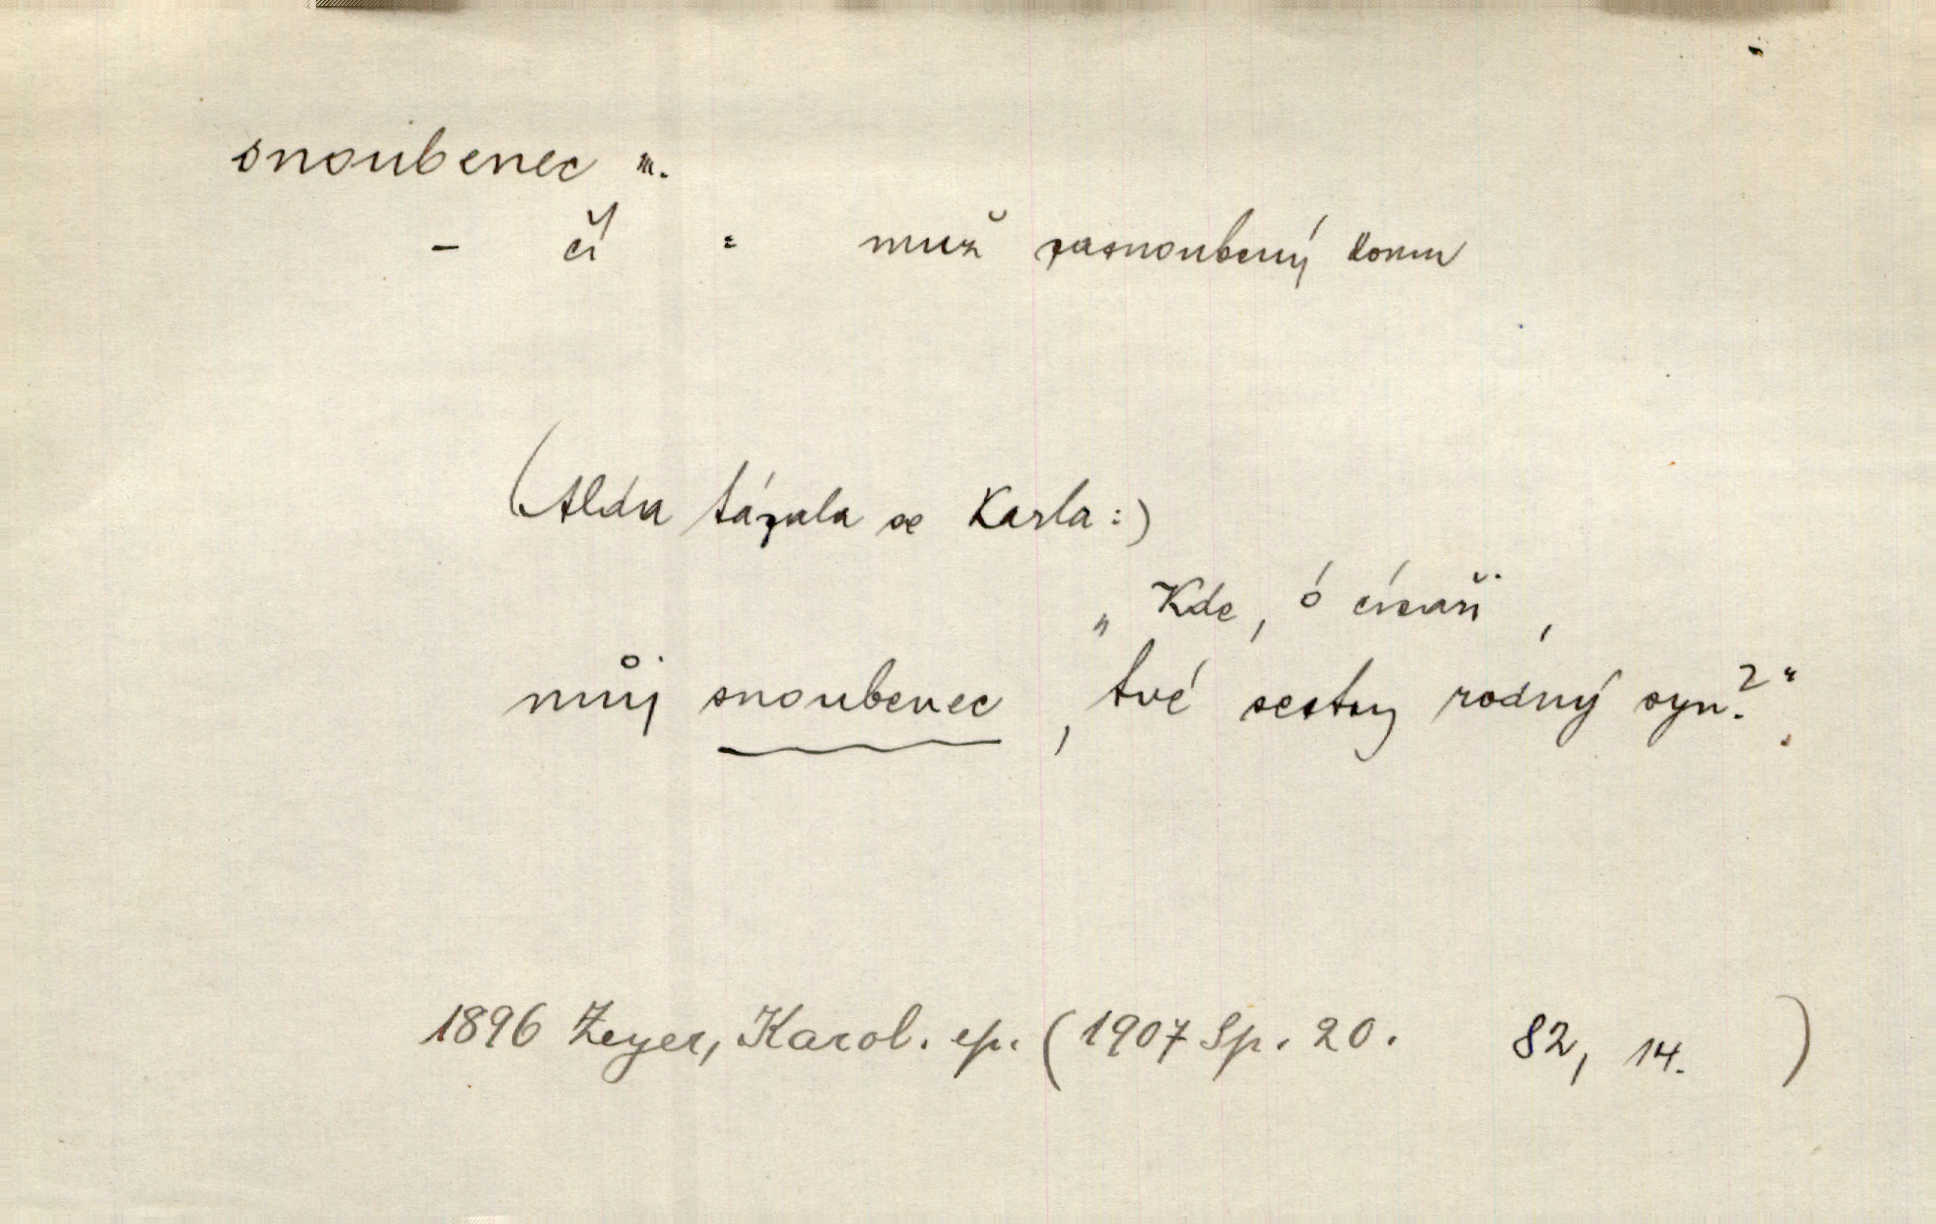 snoubenec m.
- čí = muž zasnoubený komu
(Alda tázala se Karla:)
„Kde, ó císaři,
můj snoubenec, tvé sestry rodný syn?“
1896 Zeyer, Karol. ep. (1907 Sp. 20. 82, 14. )